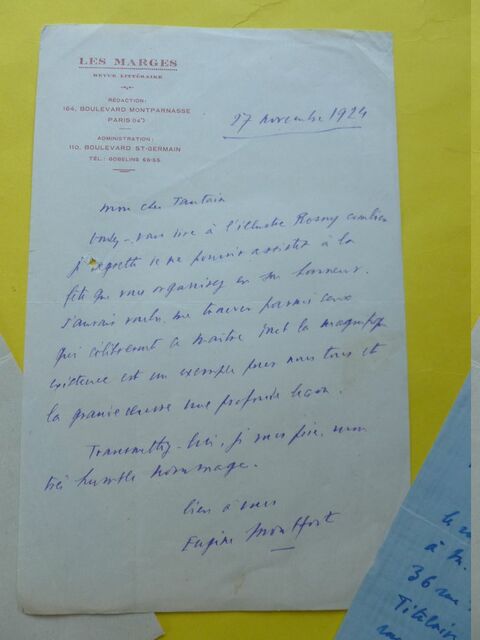 LES MARGES
REVUE LITTÉRAIRE
RÉDACTION:
164, BOULEVARD MONTPARNASSE
PARIS (14e)
ADMINISTRATION:
110, BOULEVARD ST-GERMAIN
TÉL.: GOBELINS 68-55
27 novembre 1924
Mon cher Tautain
Voulez-vous dire à l'illustre Rosny combien
je regrette de ne pouvoir assister à la
fête que vous organisez en son honneur.
J'aurais voulu me trouver parmi ceux
qui célèbreront ce maître dont la magnifique
existence est un exemple pour nous tous et
la grande œuvre une profonde leçon.
Transmettez-lui, je vous prie, mon
très humble hommage.
bien à vous
Eugène Montfort
à M.
36 rue
Titulaire